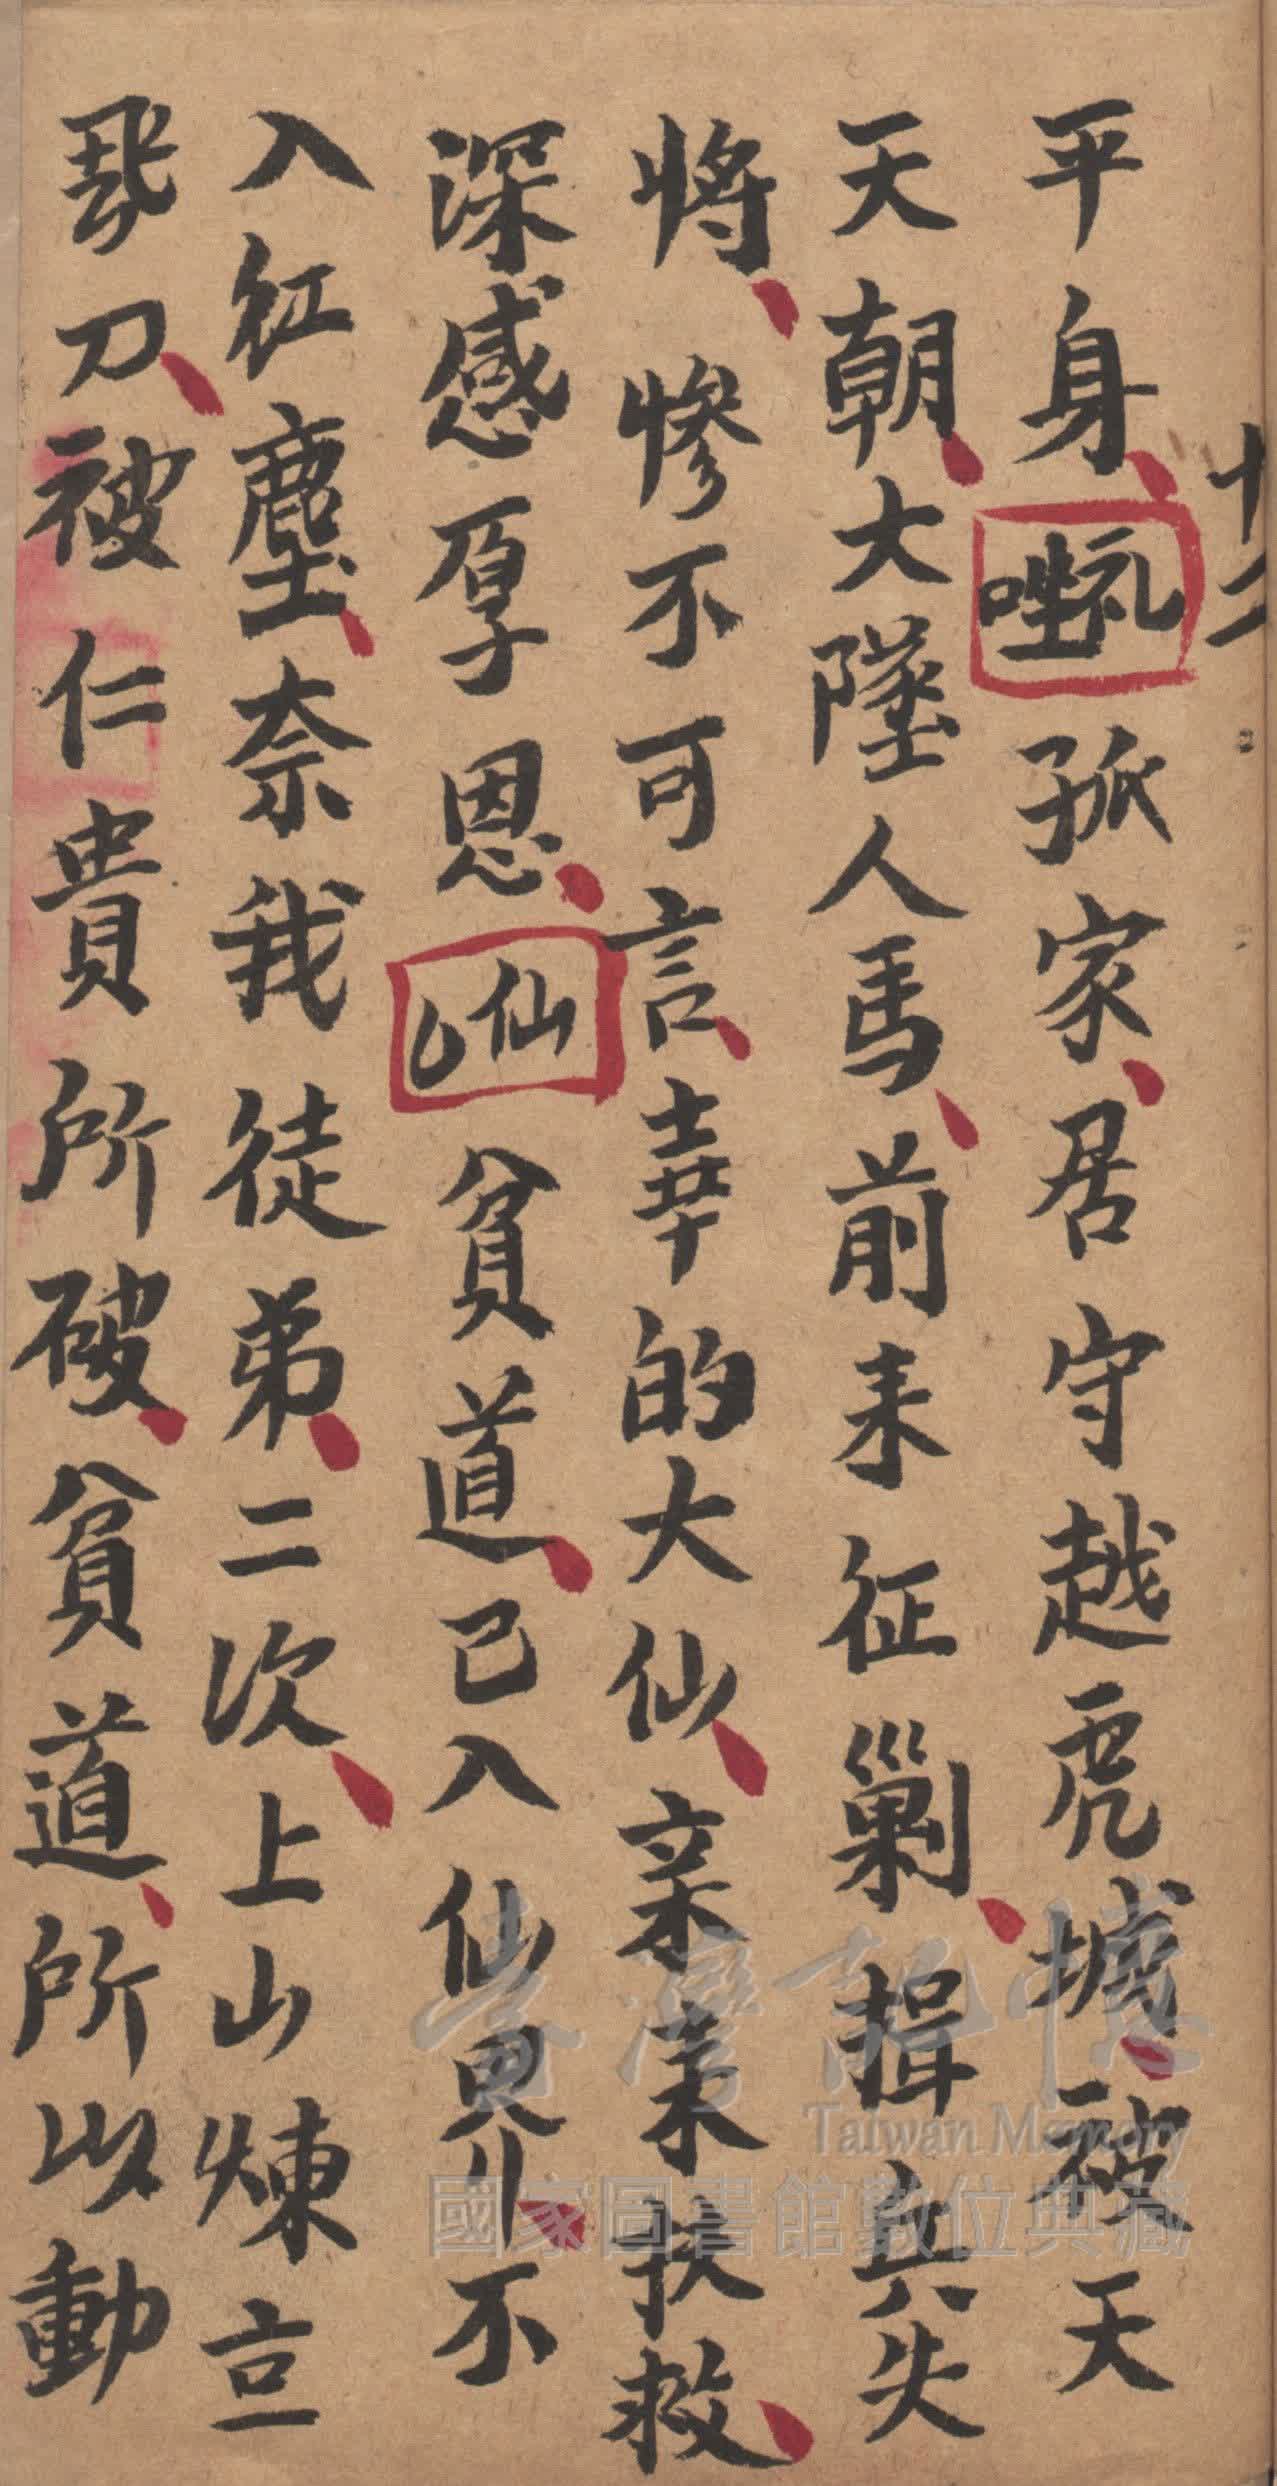 十二
平身礼唑孤家居守越虎城被天
天朝大墜人馬前来征剿損兵失
将慘不可言幸的大仙来扶救
深感厚恩仙し貧道已入仙界不
入紅塵奈我徒弟二次上山煉
飛刀被仁貴所破貧道所以動
臺灣記憶
Taiwan Memory
國家圖書館數位典藏